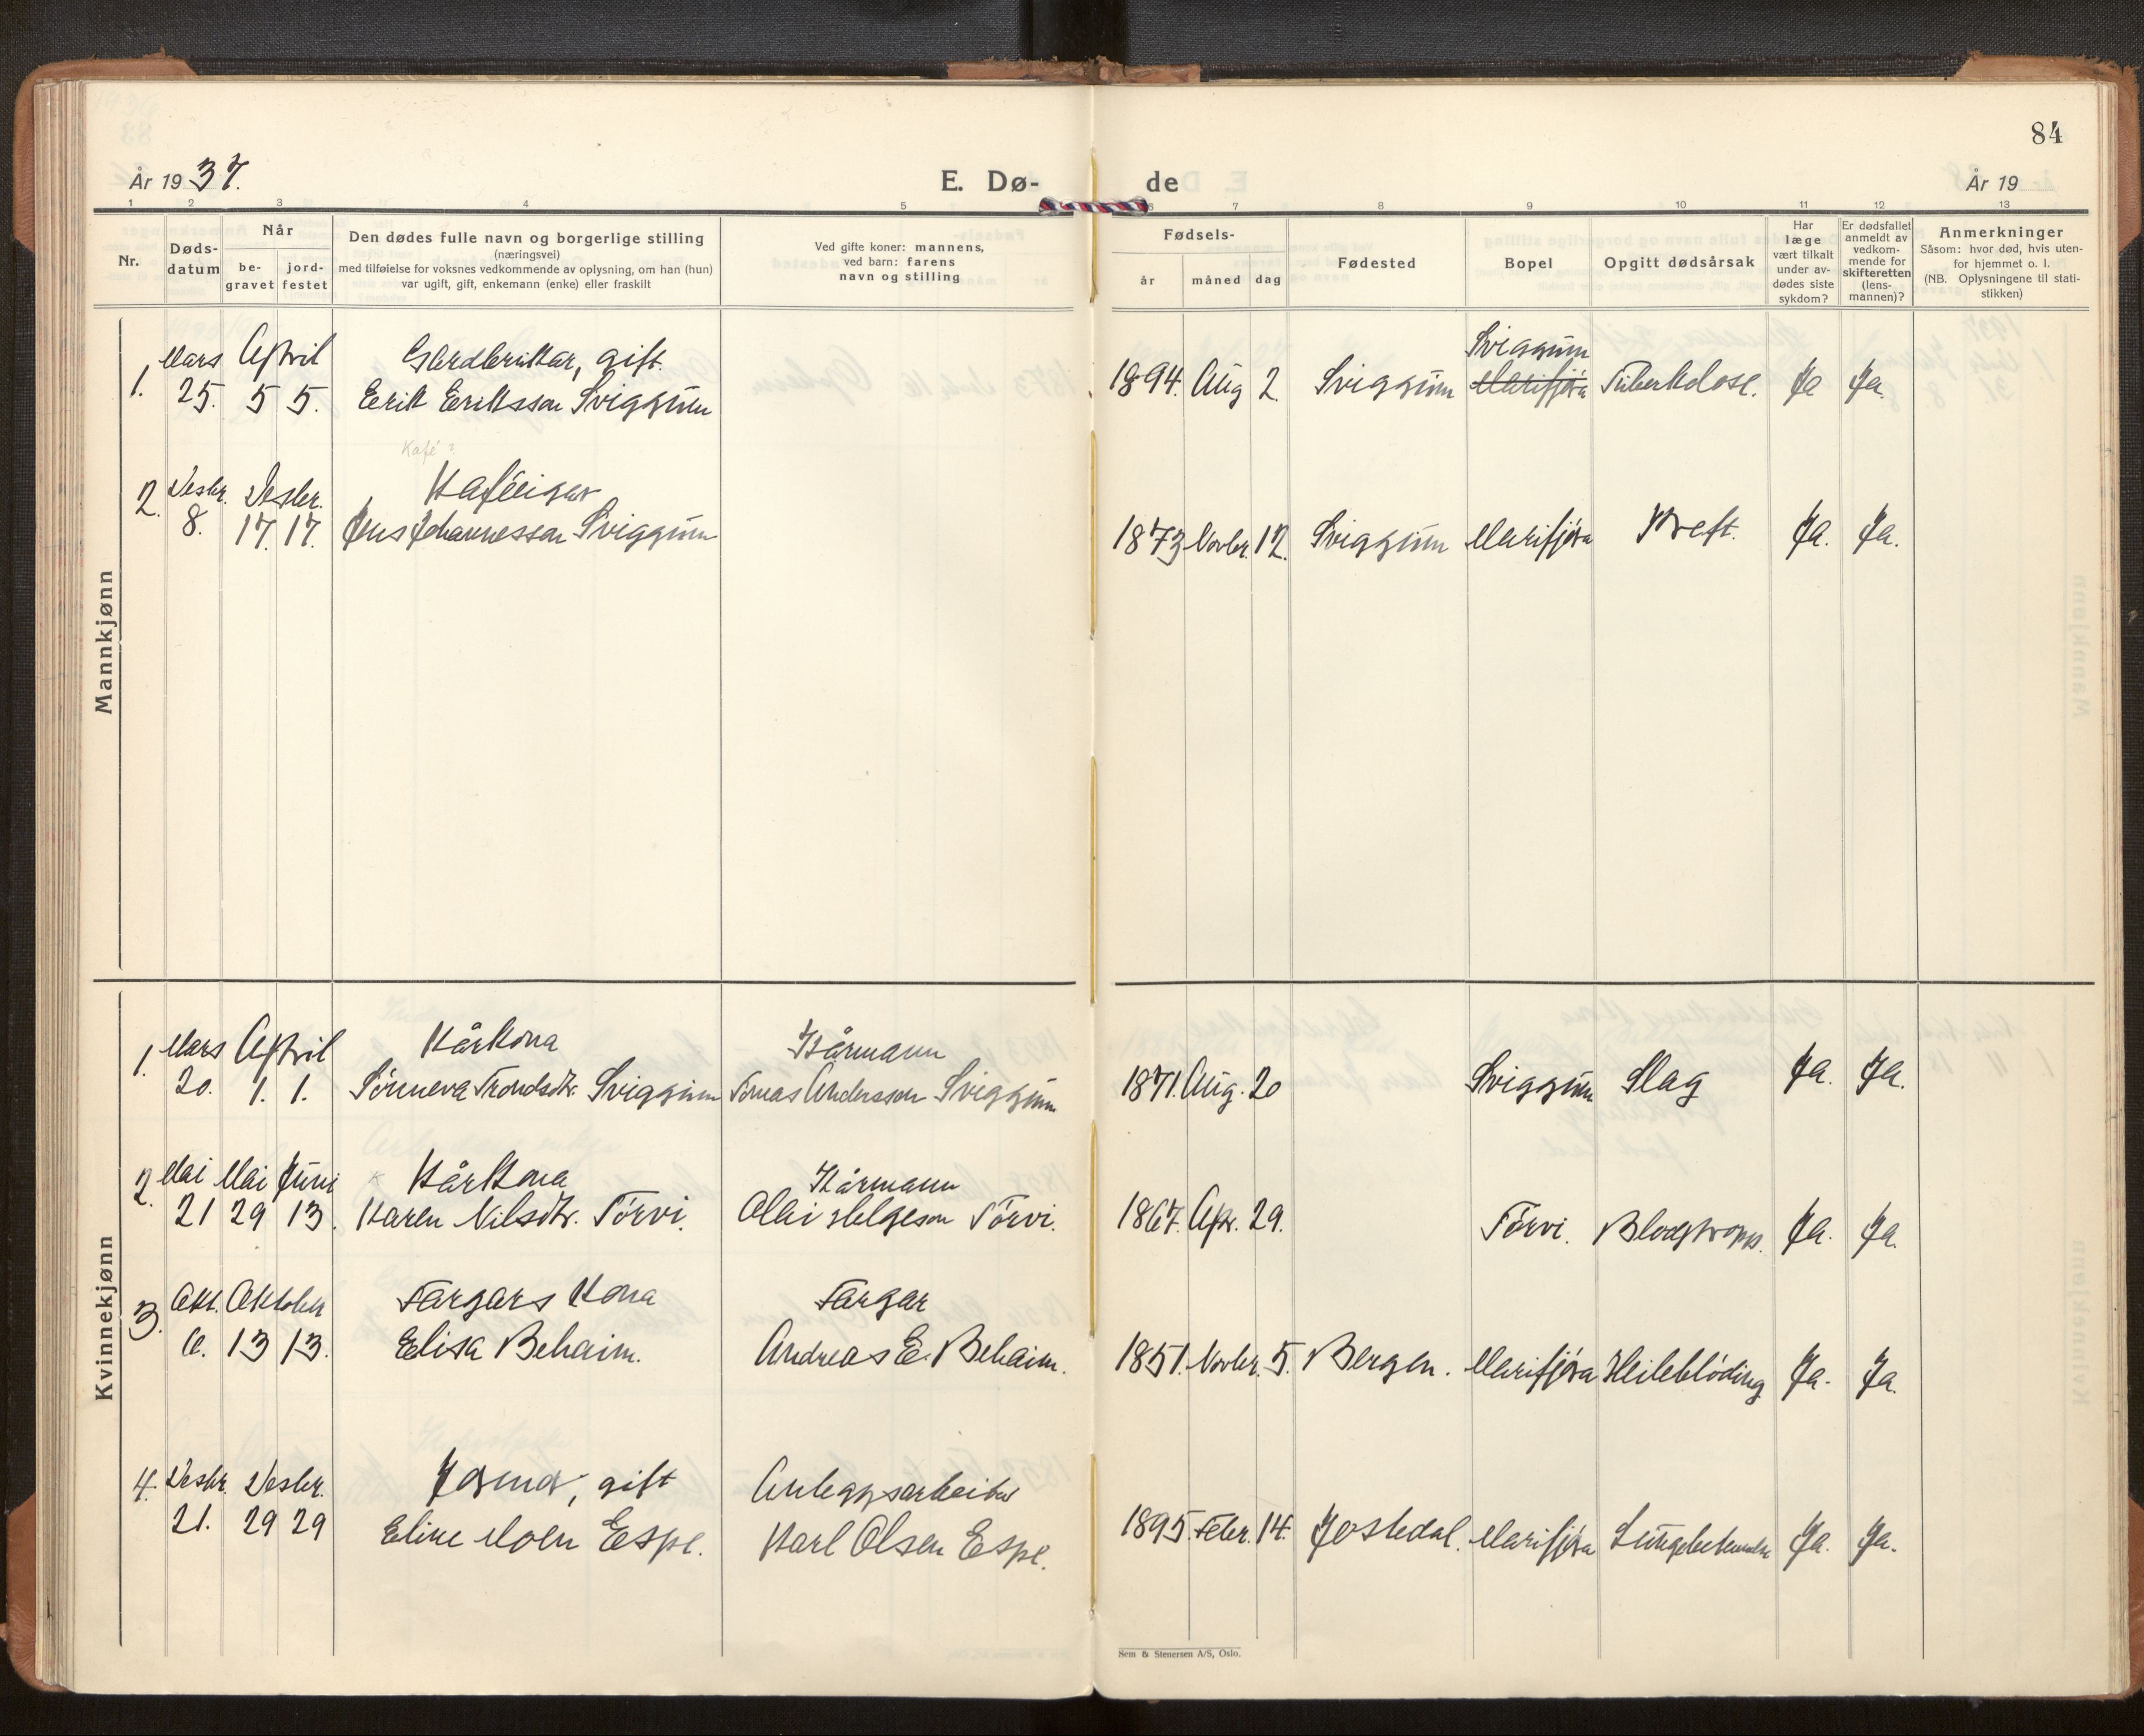 84
År 1937.
E. Dø-
de
År 19
1 2 3 4 5 6 7 8 9 10 11 12 13
Nr.
Døds-
datum
Når
be-
gravet
jord-
festet
Den dødes fulle navn og borgerlige stilling
(næringsvei)
med tilføielse for voksnes vedkommende av oplysning, om han (hun)
var ugift, gift, enkemann (enke) eller fraskilt
Ved gifte koner: mannens,
ved barn: farens
navn og stilling
Fødsels-
år måned dag
Fødested
Bopel
Opgitt dødsårsak
Har
læge
vært tilkalt
under av-
dødes siste
sykdom?
Er dødsfallet
anmeldt av
vedkom-
mende for
skifteretten
(lens-
mannen)?
Anmerkninger
Såsom: hvor død, hvis uten-
for hjemmet o. l.
(NB. Oplysningene til stati-
stikken)
Mannkjønn
Mars April Gardbrukar, gift. Sviggum
1. 25. 5 5. Eirik Eiriksson Sviggum 1894. Aug 2. Sviggum Marifjøra Tuberkulose. Ja Ja.
Kafé?
Desbr. Desbr. Kaféeigar
2. 8. 17. 17. Jens Johannesson Sviggum 1873 Novbr. 12. Sviggum Marifjøra Kreft. Ja. Ja.
Kvinnekjønn
Mars April Kårkona Kårmann
1. 20. 1. 1. Sønneva Trondsdtr. Sviggum Tomas Andersson Sviggum 1871. Aug. 20 Sviggum Slag Ja. Ja.
Mai Mai Juni Kårkona Kårmann
2. 21 29 13. Karen Nilsdtr. Tørvi. Olai Helgeson Tørvi. 1867. Apr. 29. Tørvi. Blodpropp. Ja. Ja.
Okt. Oktober Fargars kona Fargar
3. 6. 13 13. Elisa Behaim. Andreas E. Behaim. 1851. Novbr. 5. Bergen. Marifjøra Heilebløding Ja. Ja.
Desbr. Desbr. Jordmor, gift Anleggsarbeidar
4. 21. 29 29 Eline Moen Espe. Karl Olsen Espe. 1895 Febr. 14. Jostedal. Marifjøra Ja. Ja.
Sem & Stenersen A/S, Oslo.